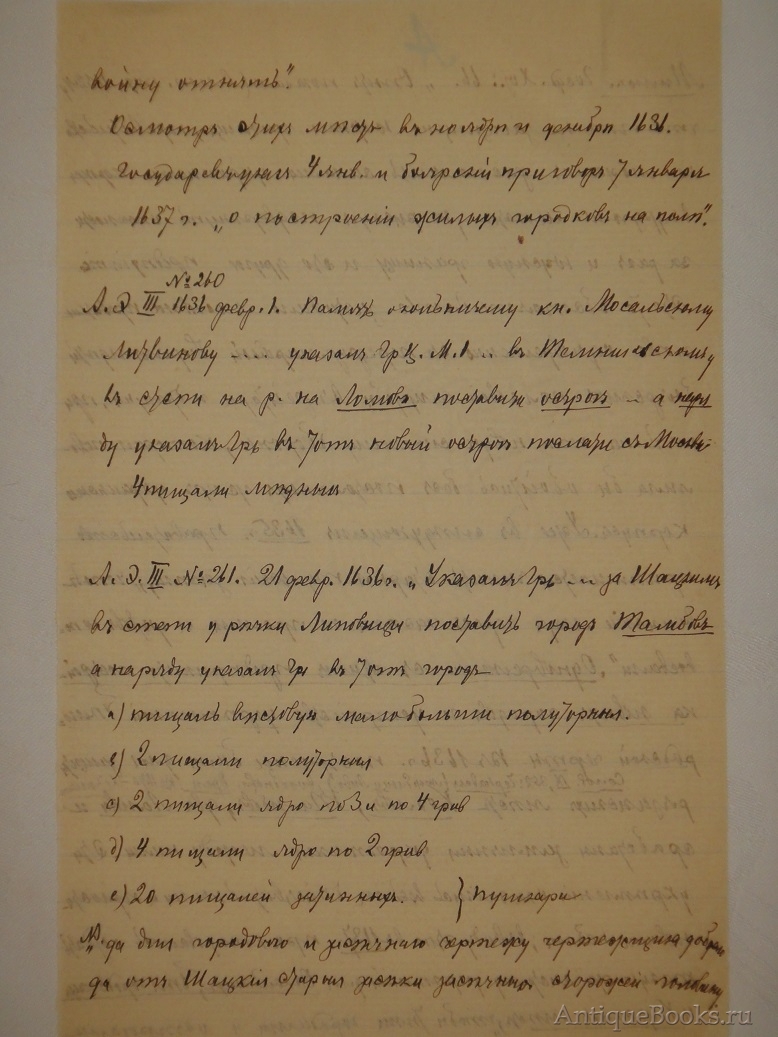 войну отнять".
Осмотръ этихъ мѣстъ въ ноябрѣ и декабрѣ 1636.
Государевъ указъ 4 янв. и боярскій приговоръ 7 января
1637 г. „о построеніи жилыхъ городковъ на полѣ".
№ 260
А. Э. III 1636 февр. 1. Память окольничему кн. Мосальскому
Литвинову .... указалъ Гр Ц. М. Ѳ .. въ Темниковскому
въ степи на р. на Ломовъ поставити острогъ .. а наря
ду указалъ Грь въ тотъ новый острогъ послати съ Москвы
4 пищали мѣдныя
А. Э. III № 261. 21 февр. 1636 г. „Указалъ Грь ... за Шацкимъ
въ степи у рѣчки Липовицы поставить городъ Тамбовъ
а наряду указалъ Грь въ тотъ городъ
а) пищаль вѣстовую мало больши полуторныя.
в) 2 пищали полуторныя
с) 2 пищали ядро по 3 и по 4 грив
д) 4 пищали ядро по 2 грив
е) 20 пищалей затинныхъ. } пушкари
„да для городового и засѣчнаго чертежу чертежщика добраго
да отъ Шацкія старыя засѣчныхъ сторожей головину
AntiqueBooks.ru